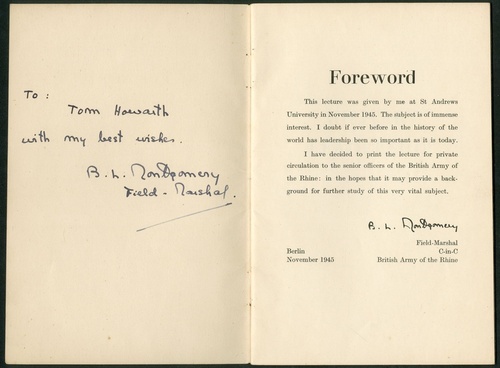 To :
Tom Howarth
with my best wishes.
B. L. Montgomery
Field-Marshal.
Foreword
This lecture was given by me at St Andrews
University in November 1945. The subject is of immense
interest. I doubt if ever before in the history of the
world has leadership been so important as it is today.
I have decided to print the lecture for private
circulation to the senior officers of the British Army of
the Rhine: in the hopes that it may provide a back-
ground for further study of this very vital subject.
B. L. Montgomery
Field-Marshal
Berlin C-in-C
November 1945 British Army of the Rhine